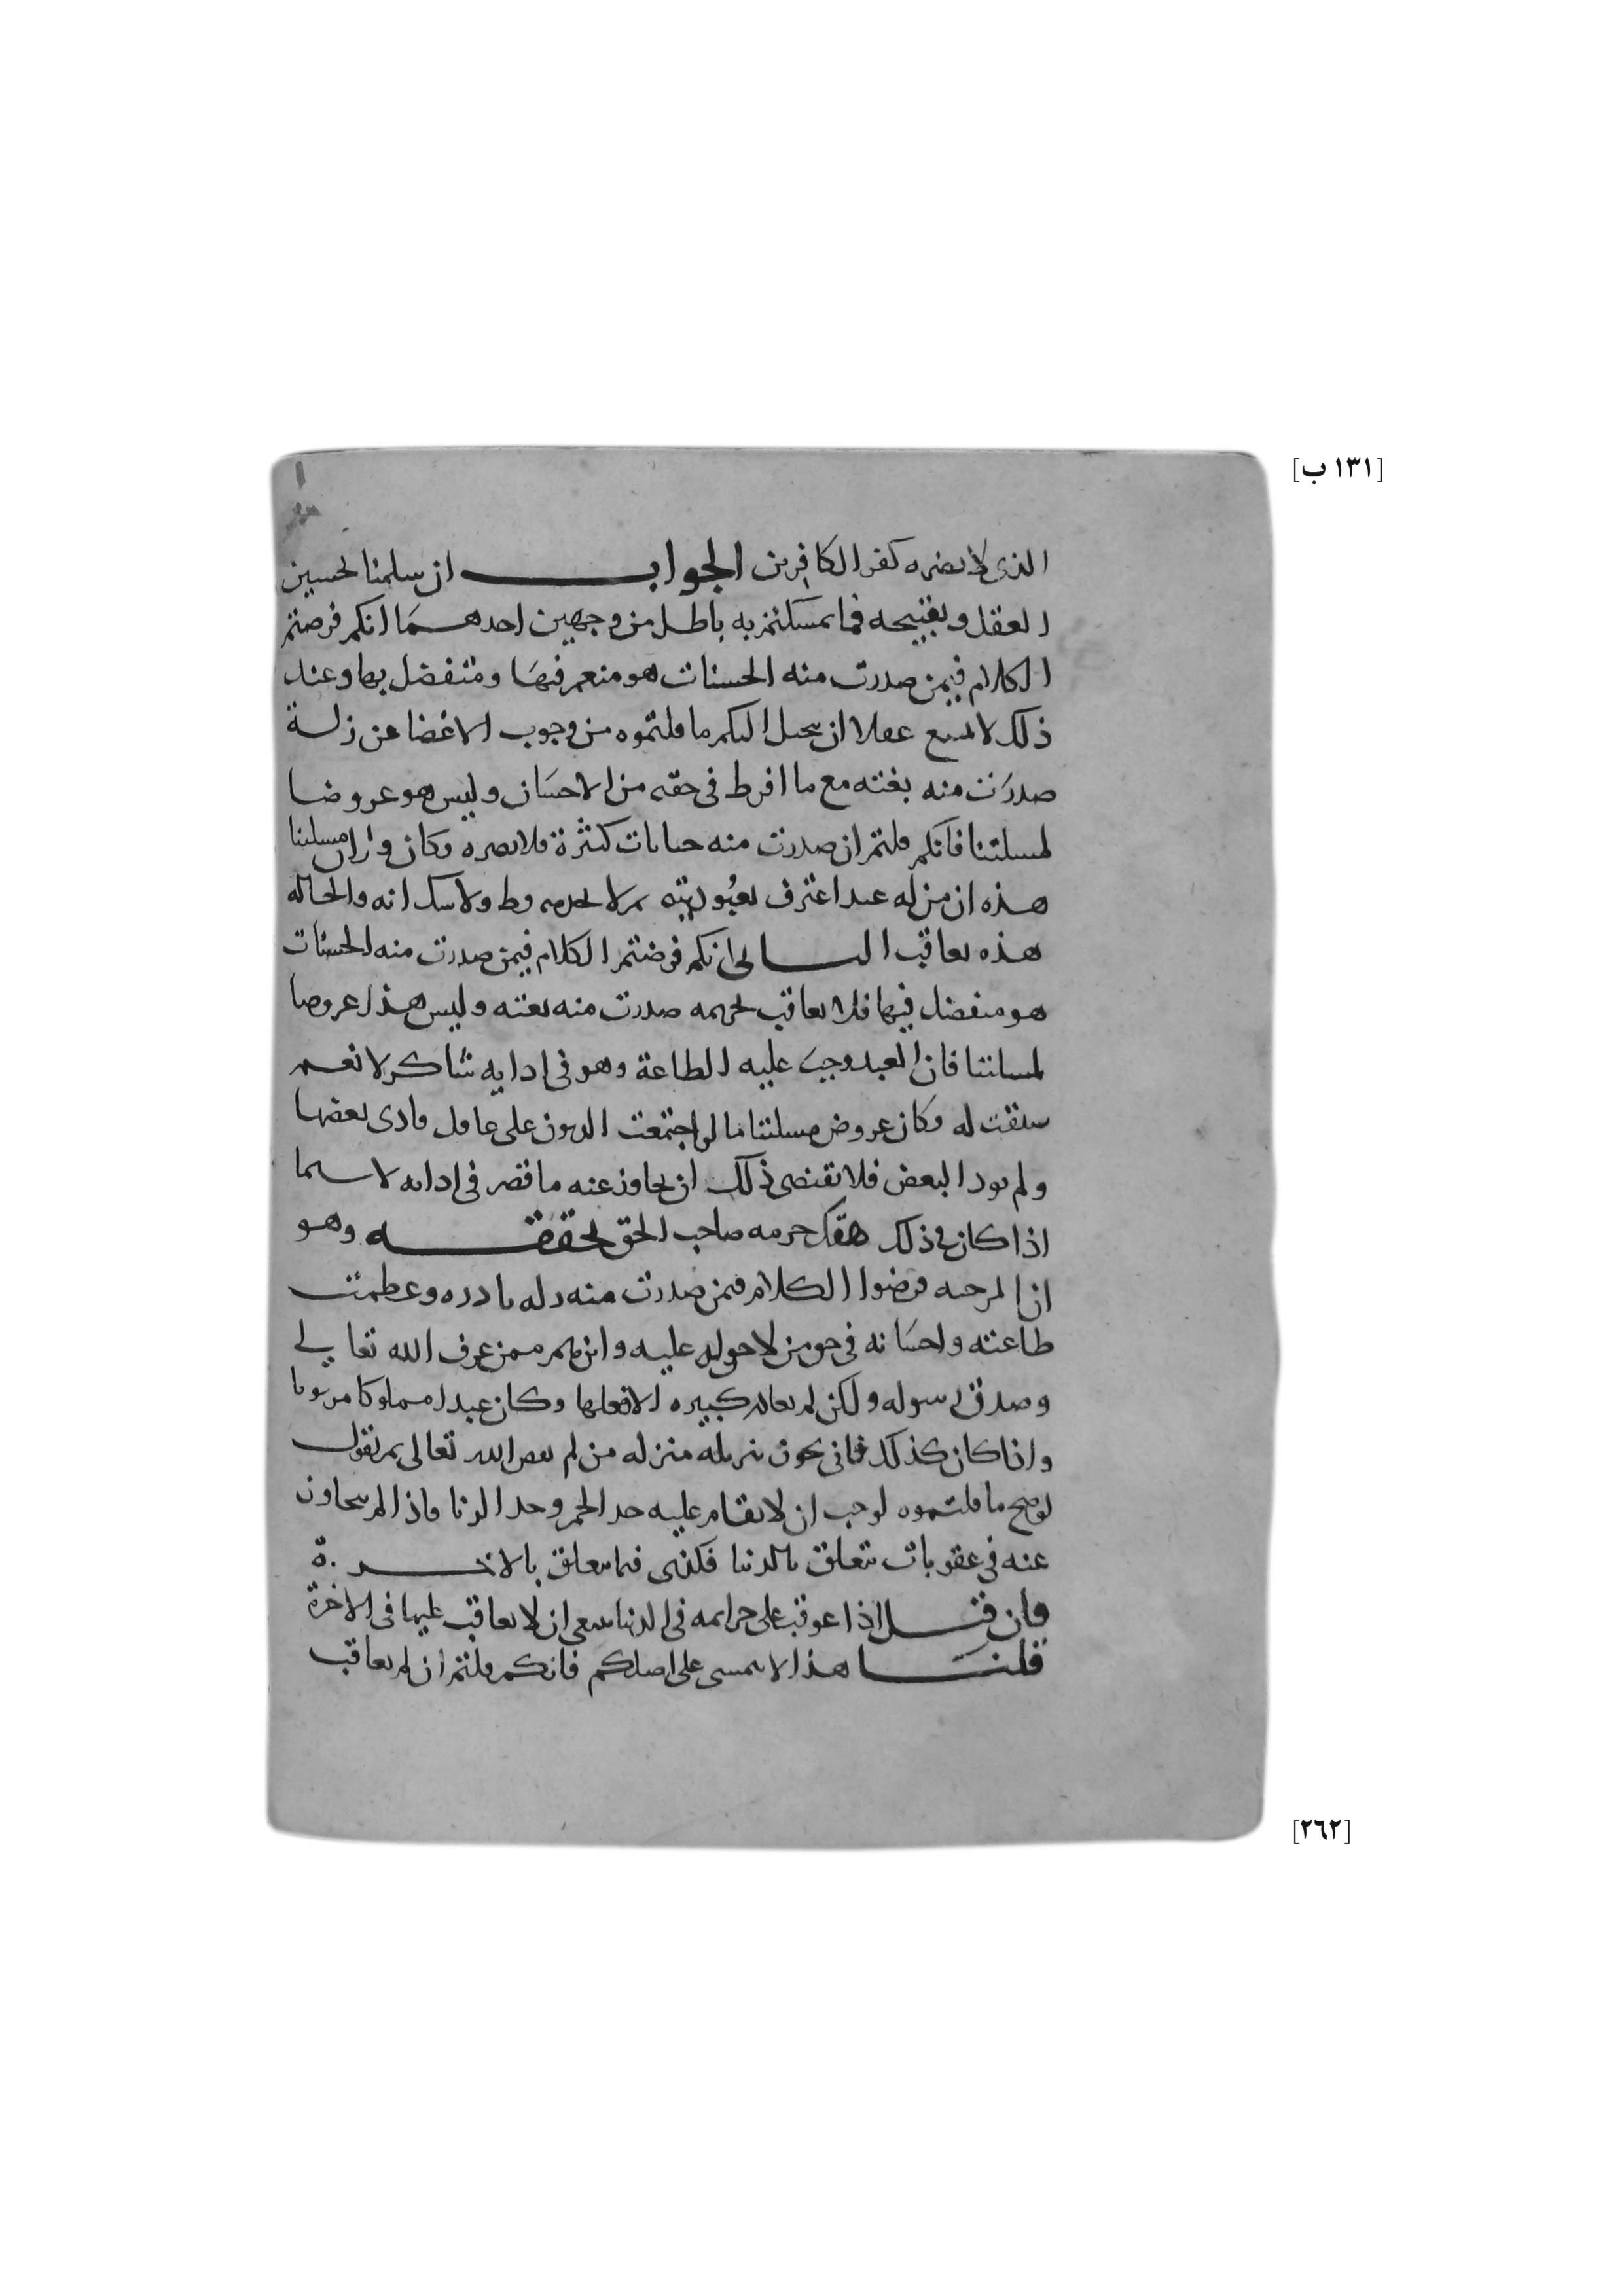 [١٣١ ب]
الذي لا يضره كفر الكافرين الجواب ان سلمنا تحسين
العقل وتقبيحه فما تمسكتم به باطل من وجهين احدهما انكم فرضتم
الكلام فيمن صدرت منه الحسنات هو منعم فيها ومتفضل بها وعند
ذلك لا يمتنع عقلا ان يحمل اليكم ما قلتموه من وجوب الاغضا عن زلة
صدرت منه بغتة مع ما افرط في حقه من الاحسان وليس هو عروضا
لمسلتنا فانكم قلتم ان صدرت منه جنايات كثيرة فلا يضره وكان وزان مسلتنا
هذه ان منزله عبد اعترف بعبوديته ثم لا يخدمه قط ولا شك انه والحاله
هذه يعاقب الثاني انكم فرضتم الكلام فيمن صدرت منه الحسنات
هو متفضل فيها فلا يعاقب لجريمه صدرت منه بغته وليس هذا عروضا
لمسلتنا فان العبد وجب عليه الطاعة وهو في ادايه شاكر لانعم
سبقت له وكان عروض مسلتنا ما لو اجتمعت الديون على عاقل فادى بعضها
ولم يود البعض فلا يقتضي ذلك ان يجاوز عنه ما قصر في ادايه لا سيما
اذا كان في ذلك هتك حرمه صاحب الحق تحققه وهو
ان المرجيه فرضوا الكلام فيمن صدرت منه زله نادره وعظمت
طاعته واحسانه في حق من لا حق له عليه واين هم ممن عرف الله تعالى
وصدق رسوله ولكن لم يغادر كبيره الا فعلها وكان عبدا مملوكا مربوبا
واذا كان كذلك فاني يجوز تنزيله منزله من لم يعص الله تعالى ثم نقول
لو صح ما قلتموه لوجب ان لا يقام عليه حد الخمر وحد الزنا فاذا لم يتجاوز
عنه في عقوبات تتعلق بالدنيا فكذى فيما يتعلق بالاخرة
فان قيل اذا عوقب على جرايمه في الدنيا ينبغي ان لا يعاقب عليها في الاخرة
قلنا هذا لا يتمشى على اصلكم فانكم قلتم ان لم يعاقب
[٢٦٢]